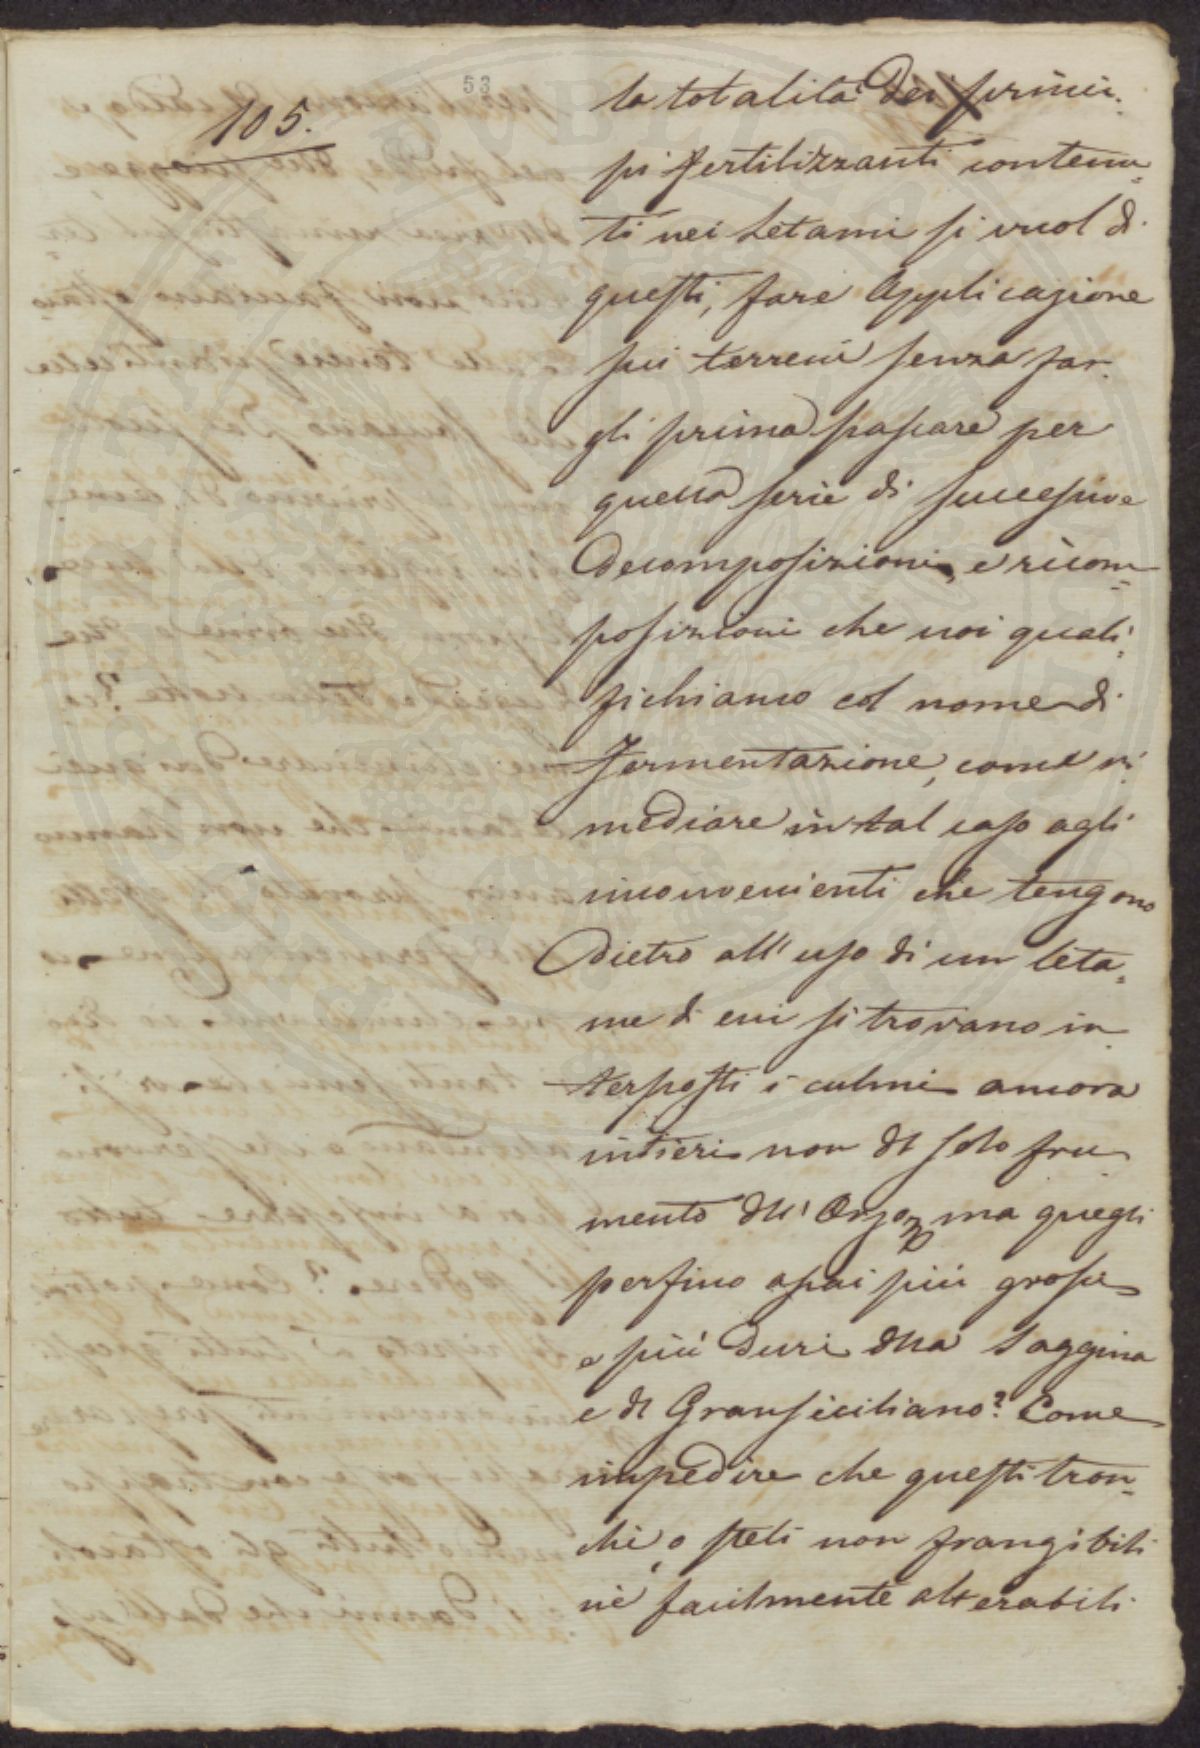 53
105.
la totalità dei princi-
pi fertilizzanti contenu-
ti nei Letami si vuol di
questi, fare Applicazione
sui terreni senza far-
gli prima passare per
quella serie di successive
decomposizioni, e ricom-
posizioni che noi quali-
fichiamo col nome di
Fermentazione, come ri-
mediare in tal caso agli
inconvenienti che tengono
dietro all'uso di un leta-
me di cui si trovano in-
terposti i culmi ancora
intieri non dl solo fru-
mento dll' Orzo, ma quegli
perfino assai più grossi
e più duri dlla Saggina
e dl Gransiciliano? Come
impedire che questi tron-
chi, o steli non frangibili
nè facilmente alterabili